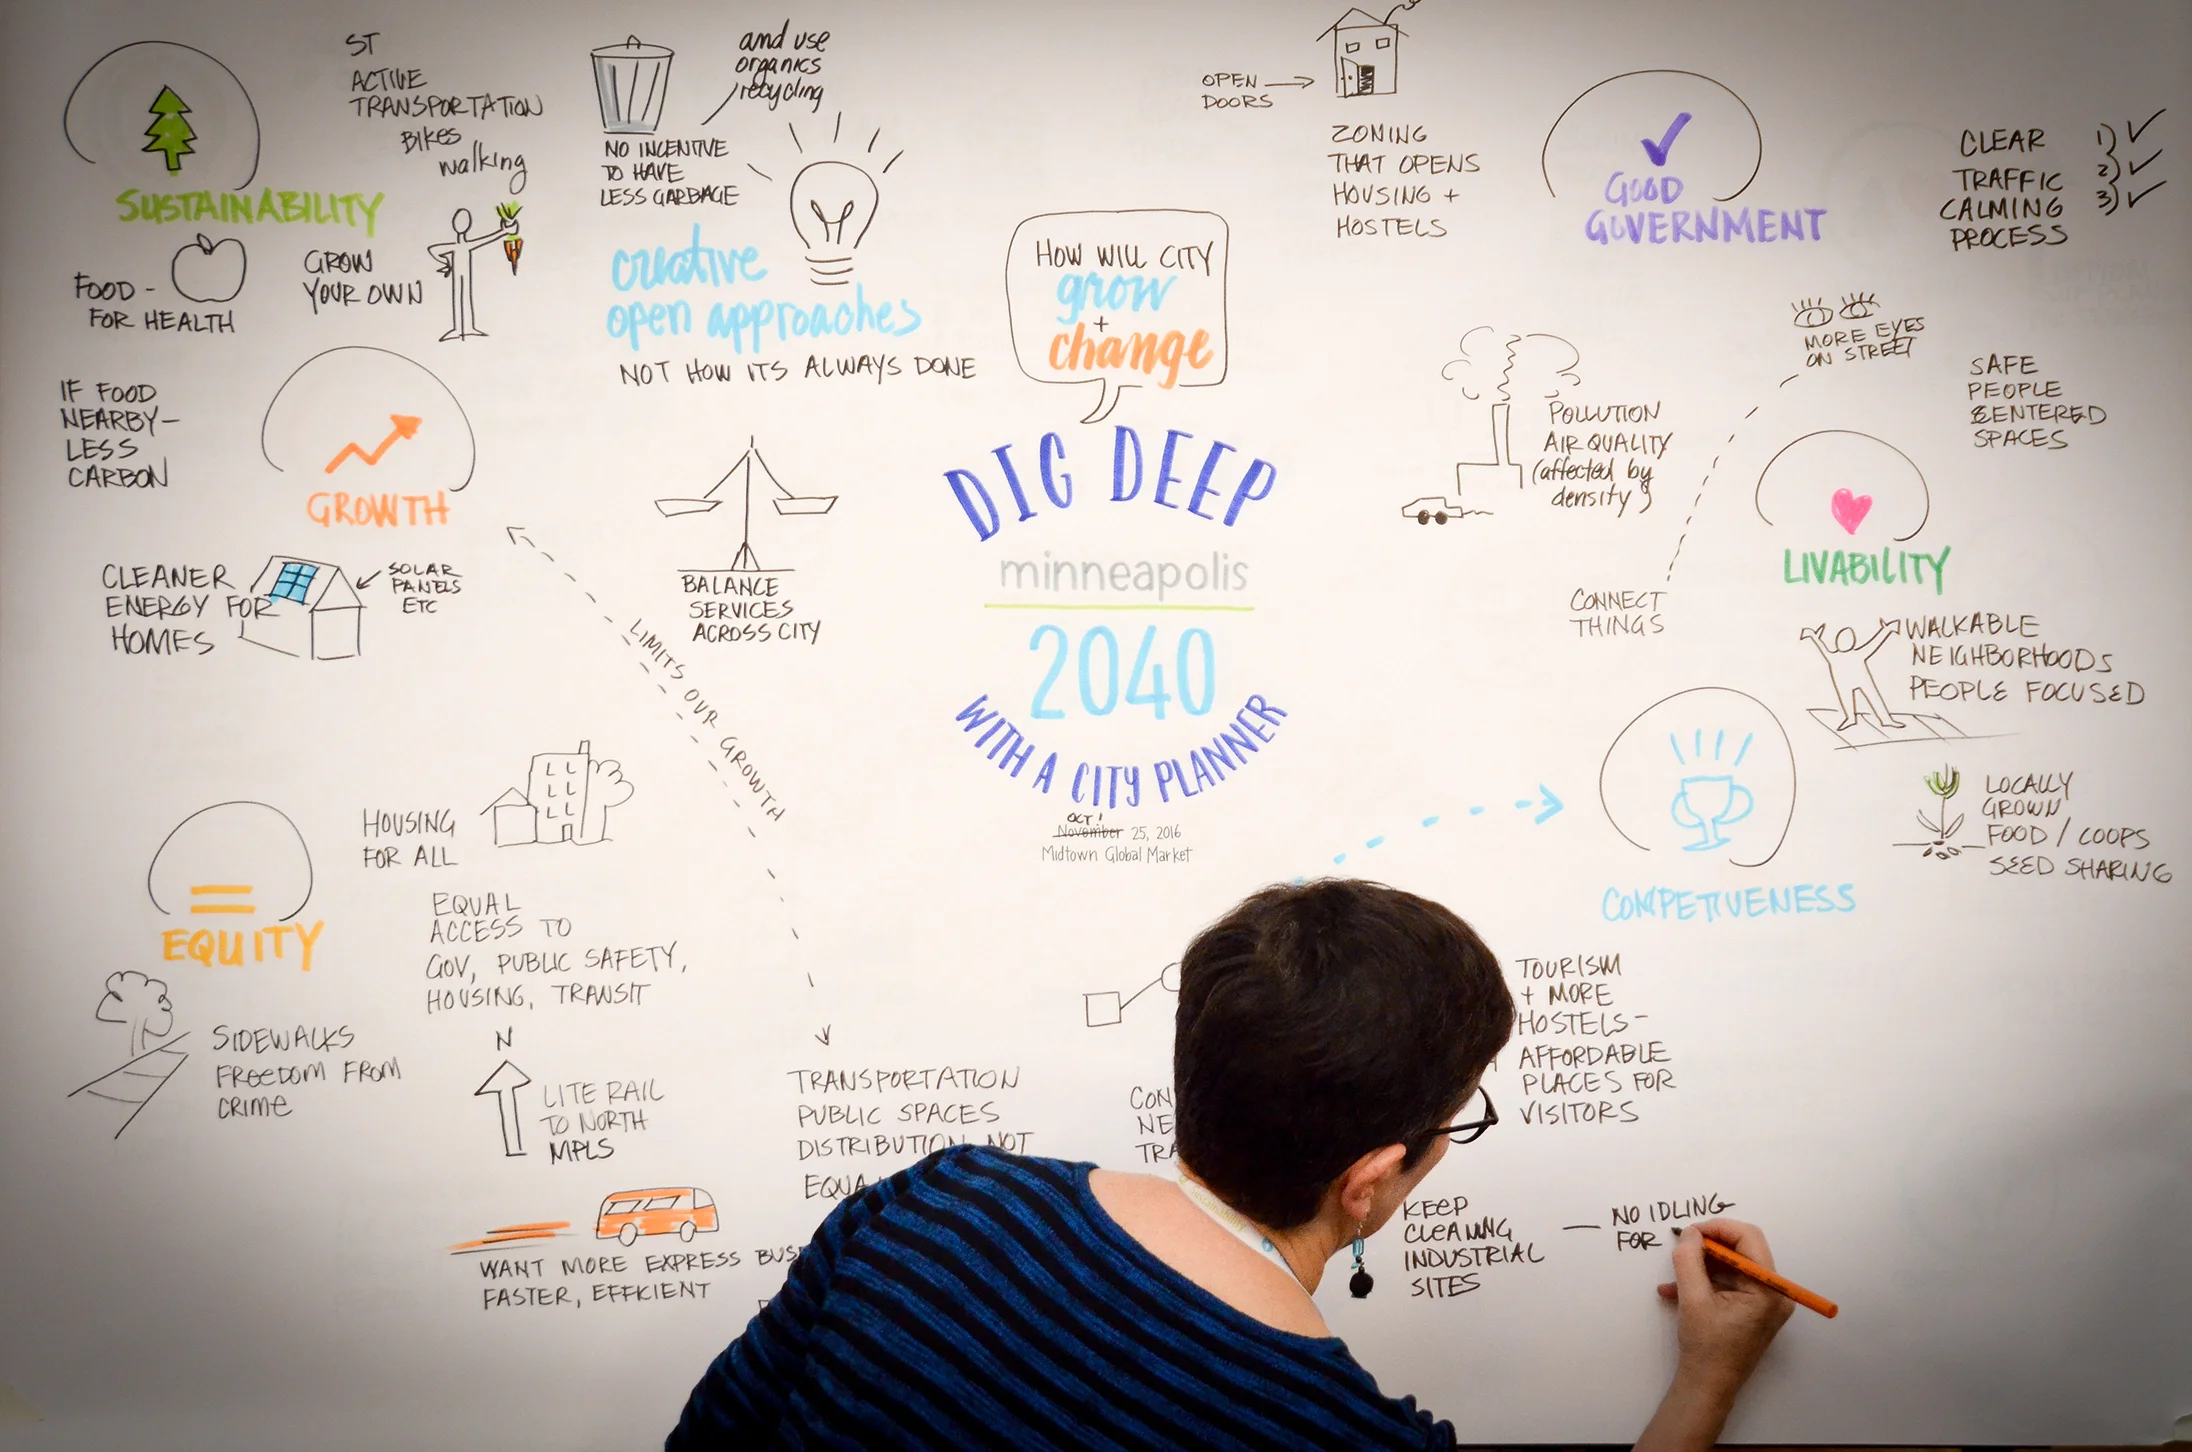 ST
ACTIVE
TRANSPORTATION
BIKES
walking
SUSTAINABILITY
FOOD -
FOR HEALTH
GROW
YOUR OWN
and use
organics
recycling
NO INCENTIVE
TO HAVE
LESS GARBAGE
creative
open approaches
NOT HOW ITS ALWAYS DONE
HOW WILL CITY
grow
+
change
OPEN
DOORS
ZONING
THAT OPENS
HOUSING +
HOSTELS
GOOD
GOVERNMENT
CLEAR
TRAFFIC
CALMING
PROCESS
1) ✓
2) ✓
3) ✓
IF FOOD
NEARBY-
LESS
CARBON
GROWTH
CLEANER
ENERGY FOR
HOMES
SOLAR
PANELS
ETC
BALANCE
SERVICES
ACROSS CITY
LIMITS OUR GROWTH
DIG DEEP
minneapolis
2040
WITH A CITY PLANNER
OCT!
November 25, 2016
Midtown Global Market
POLLUTION
AIR QUALITY
(affected by
density)
MORE EYES
ON STREET
SAFE
PEOPLE
CENTERED
SPACES
CONNECT
THINGS
LIVABILITY
WALKABLE
NEIGHBORHOODS
PEOPLE FOCUSED
LOCALLY
GROWN
FOOD / COOPS
SEED SHARING
COMPETIVENESS
TOURISM
+ MORE
HOSTELS-
AFFORDABLE
PLACES FOR
VISITORS
HOUSING
FOR ALL
EQUITY
EQUAL
ACCESS TO
GOV, PUBLIC SAFETY,
HOUSING, TRANSIT
SIDEWALKS
FREEDOM FROM
CRIME
N
LITE RAIL
TO NORTH
MPLS
TRANSPORTATION
PUBLIC SPACES
DISTRIBUTION NOT
EQUA
CON
NE
TRA
WANT MORE EXPRESS BUS
FASTER, EFFICIENT
KEEP
CLEANING
INDUSTRIAL
SITES
— NO IDLING
FOR